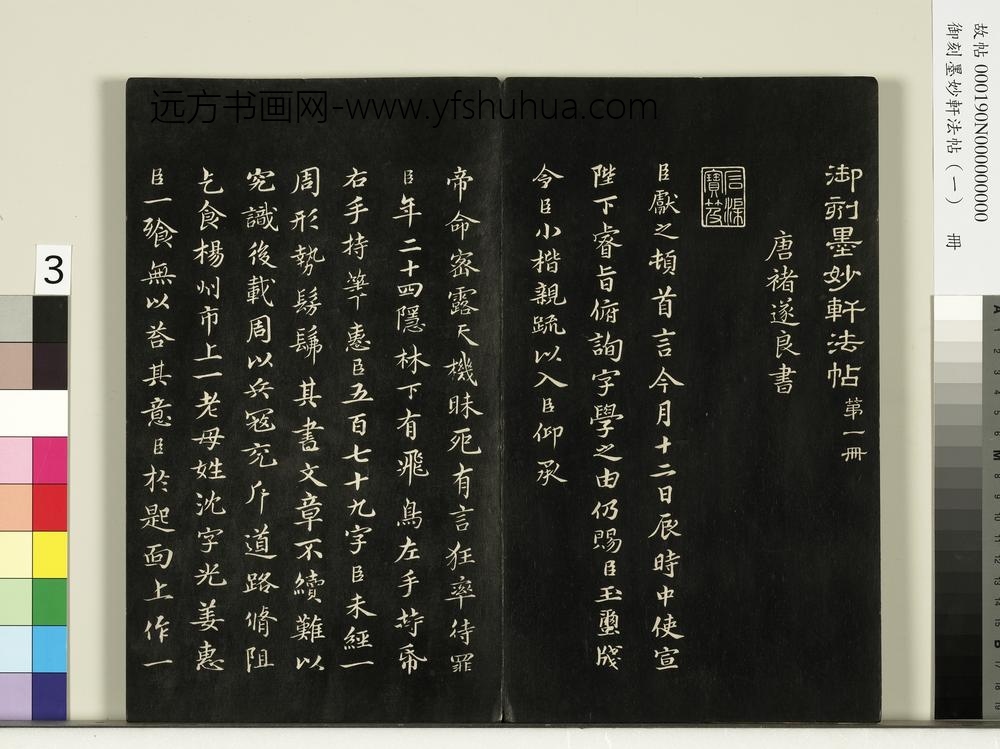 远方书画网-www.yfshuhua.com
故帖 000190N000000000
御刻墨妙軒法帖（一） 冊
3
御刻墨妙軒法帖 第一冊
唐褚遂良書
臣獻之頓首言今月十二日辰時中使宣
陛下睿旨俯詢字學之由仍賜臣玉璽牋
今臣小楷親疏以入臣仰承
帝命密露天機昧死有言狂率待罪
臣年二十四隱林下有飛鳥左手持帋
右手持筆惠臣五百七十九字臣未經一
周形勢髣髴其書文章不續難以
究識後載周以兵寇充斥道路脩阻
乞食楊州市上一老母姓沈字光姜惠
臣一飡無以荅其意臣於匙面上作一